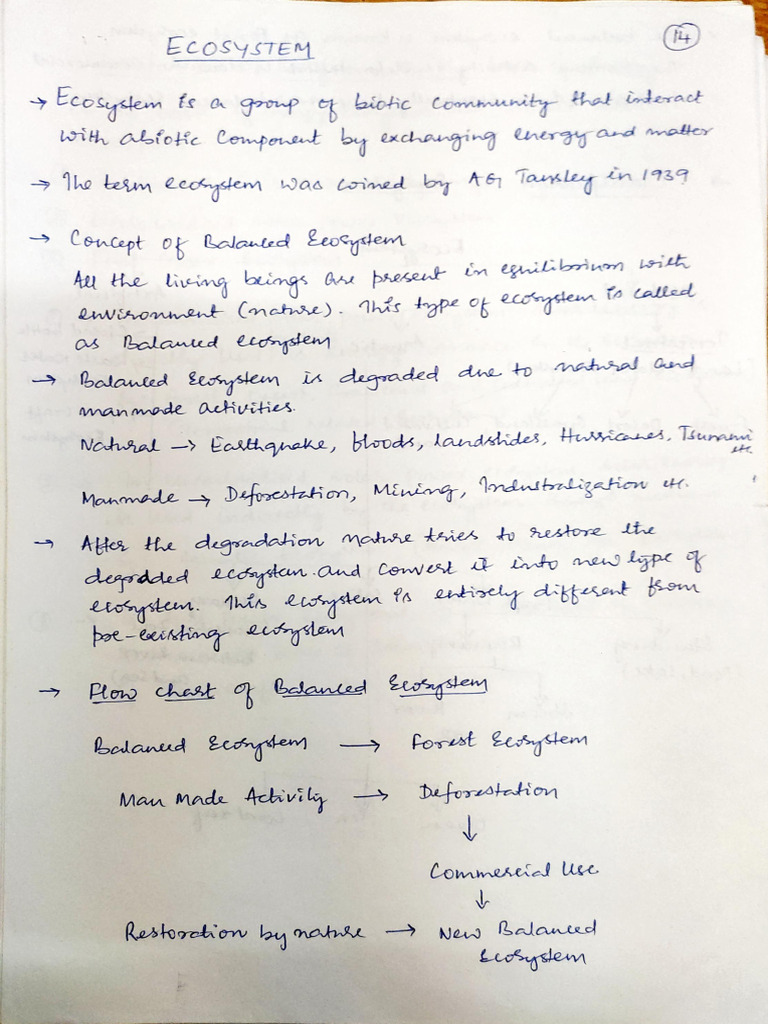 14
ECOSYSTEM
→ Ecosystem is a group of biotic community that interact
with abiotic Component by exchanging energy and matter
→ The term ecosystem was coined by AG Tansley in 1939
→ Concept of Balanced Ecosystem
All the living beings are present in equilibrium with
environment (nature). This type of ecosystem is called
as Balanced ecosystem
→ Balanced Ecosystem is degraded due to natural and
manmade activities.
Natural → Earthquake, floods, landslides, Hurricanes, Tsunami
etc.
Manmade → Deforestation, Mining, Industralization etc.
→ After the degradation nature tries to restore the
degraded ecosystem and convert it into new type of
ecosystem. This ecosystem is entirely different from
pre-existing ecosystem
→ Flow chart of Balanced Ecosystem
Balanced Ecosystem → Forest Ecosystem
Man Made Activity → Deforestation
↓
Commercial Use
↓
Restoration by nature → New Balanced
Ecosystem